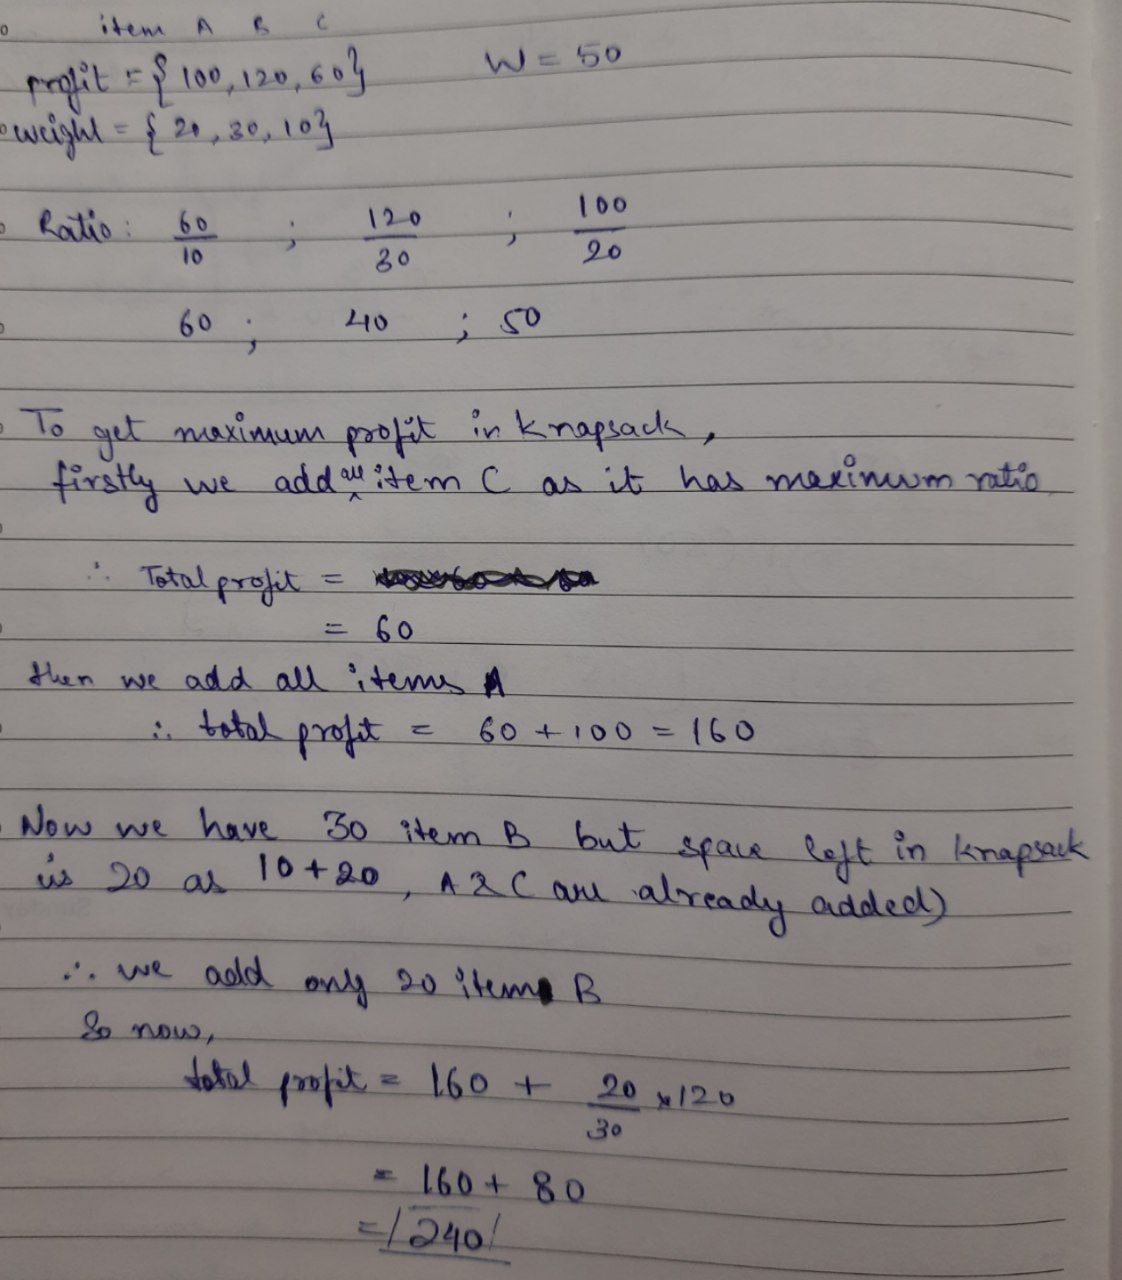 item A B C
profit = { 100, 120, 60} W = 50
weight = { 20, 30, 10}
Ratio: 60/10 ; 120/30 ; 100/20
60 ; 40 ; 50
To get maximum profit in knapsack,
firstly we add all item C as it has maximum ratio
∴ Total profit =
= 60
then we add all items A
∴ total profit = 60 + 100 = 160
Now we have 30 item B but space left in knapsack
is 20 as 10+20, A & C are already added)
∴ we add only 20 item B
So now,
total profit = 160 + 20/30 × 120
= 160 + 80
= /240/